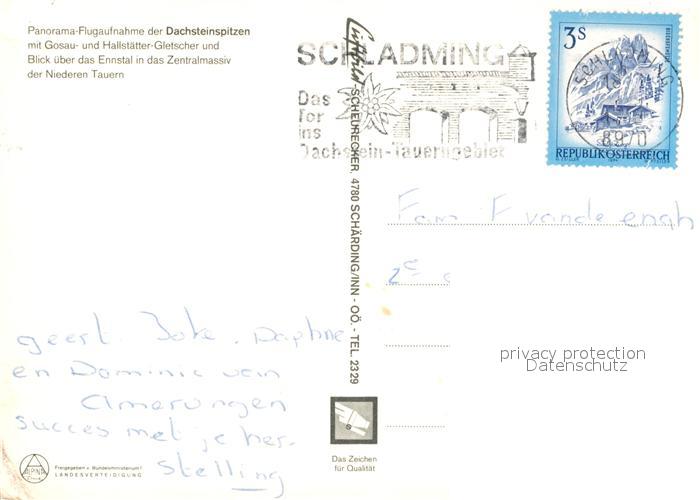 Panorama-Flugaufnahme der Dachsteinspitzen
mit Gosau- und Hallstätter-Gletscher und
Blick über das Ennstal in das Zentralmassiv
der Niederen Tauern
SCHLADMING
Das
Tor
ins
Dachstein-Tauerngebiet
3s
SCHLADMING
8970
REPUBLIK ÖSTERREICH
Luftbild SCHEURECKER, 4780 SCHÄRDING/INN - OÖ. - TEL. 2329
Fam F vande engh
2e
geert. Joke. Daphne
en Dominic van
Amerongen
succes met je her-
stelling
privacy protection
Datenschutz
Das Zeichen
für Qualität
ALPINA
Freigegeben v. Bundesministerium f.
LANDESVERTEIDIGUNG